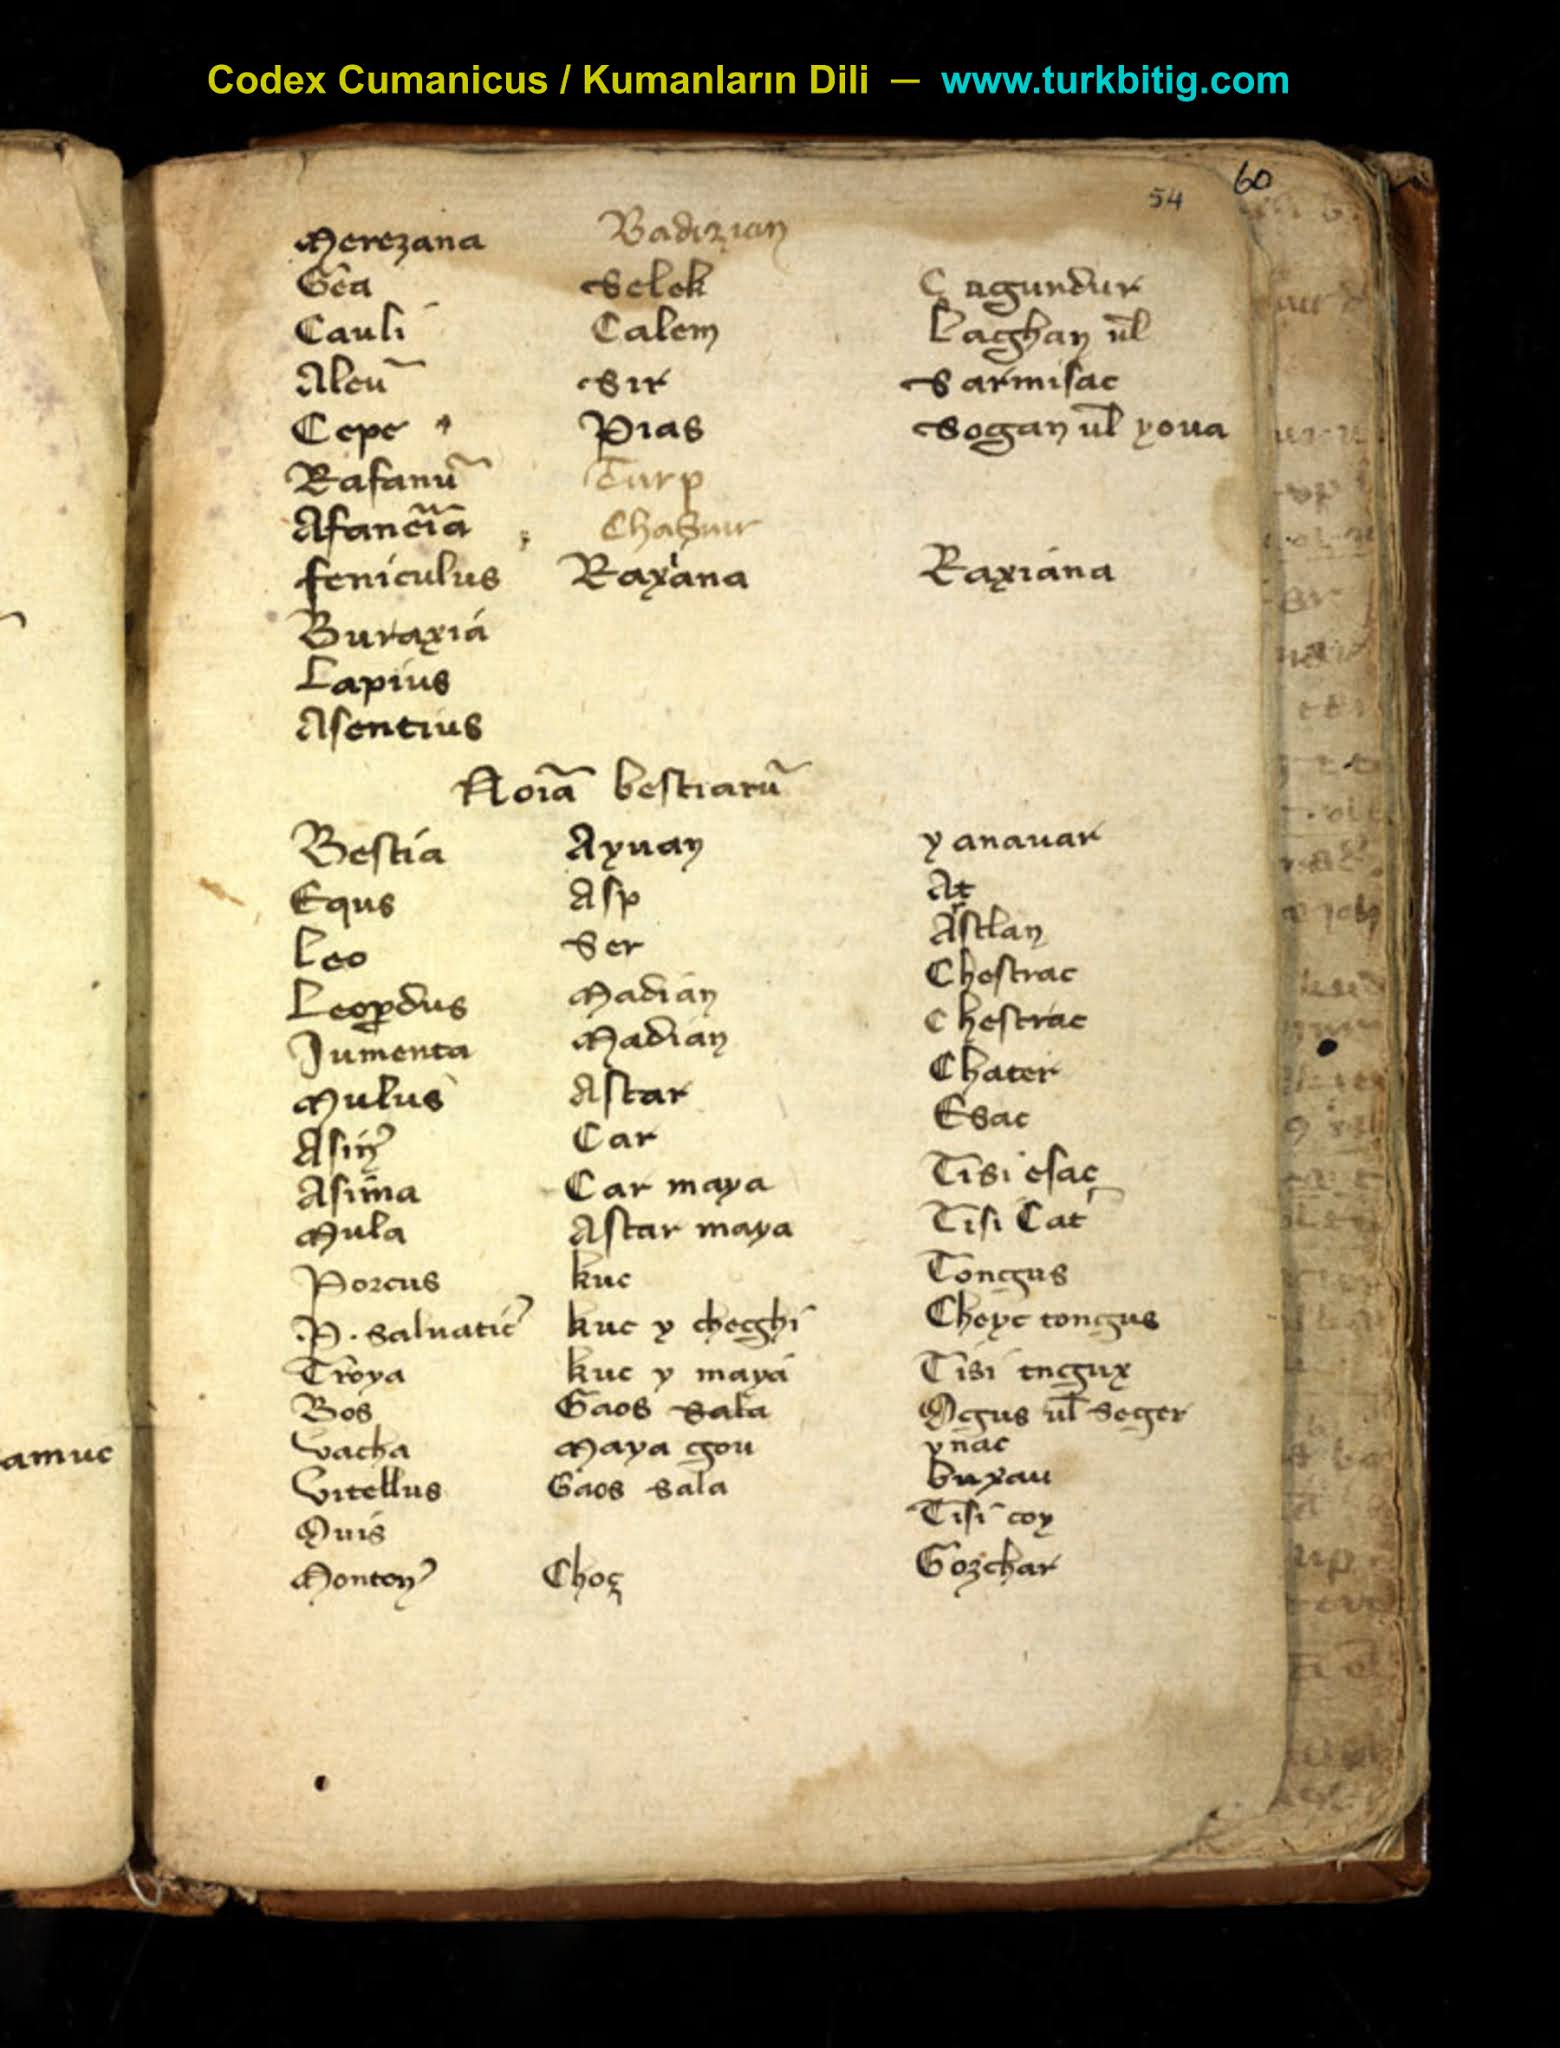 Codex Cumanicus / Kumanların Dili — www.turkbitig.com
54 60
Merezana Badizian
Gēa Selek Cugundur
Cauli Calem Laghan ul̄
Aleū Sir Sarmisac
Cepe Pias Sogan ul̄ youa
Rafanū Turp
Chasnir
feniculus Raxiana Raxiana
Buraxia
Lapius
Asentius
Noīa bestiarū
Bestia Ayuan yanauar
Equs Asp At
Leo Ser Astlan
Leopdus Madian Chestrac
Jumenta Madian Chestrac
Mulus Astar Chater
Asin⁹ Car Esac
Asina Car maya Tisi esac
Mula Astar maya Tisi Cat
Porcus kuc Tongus
.P. saluatic⁹ kuc y cheghi Cheye tongus
Troya kuc y maya Tisi tngux
Bos Gaos sala Ogus ul̄ seger
vacha Maya gou ynac
vitellus Gaos sala buxau
Ouis Tisi coy
Monton⁹ Choz Gozchar
amuc